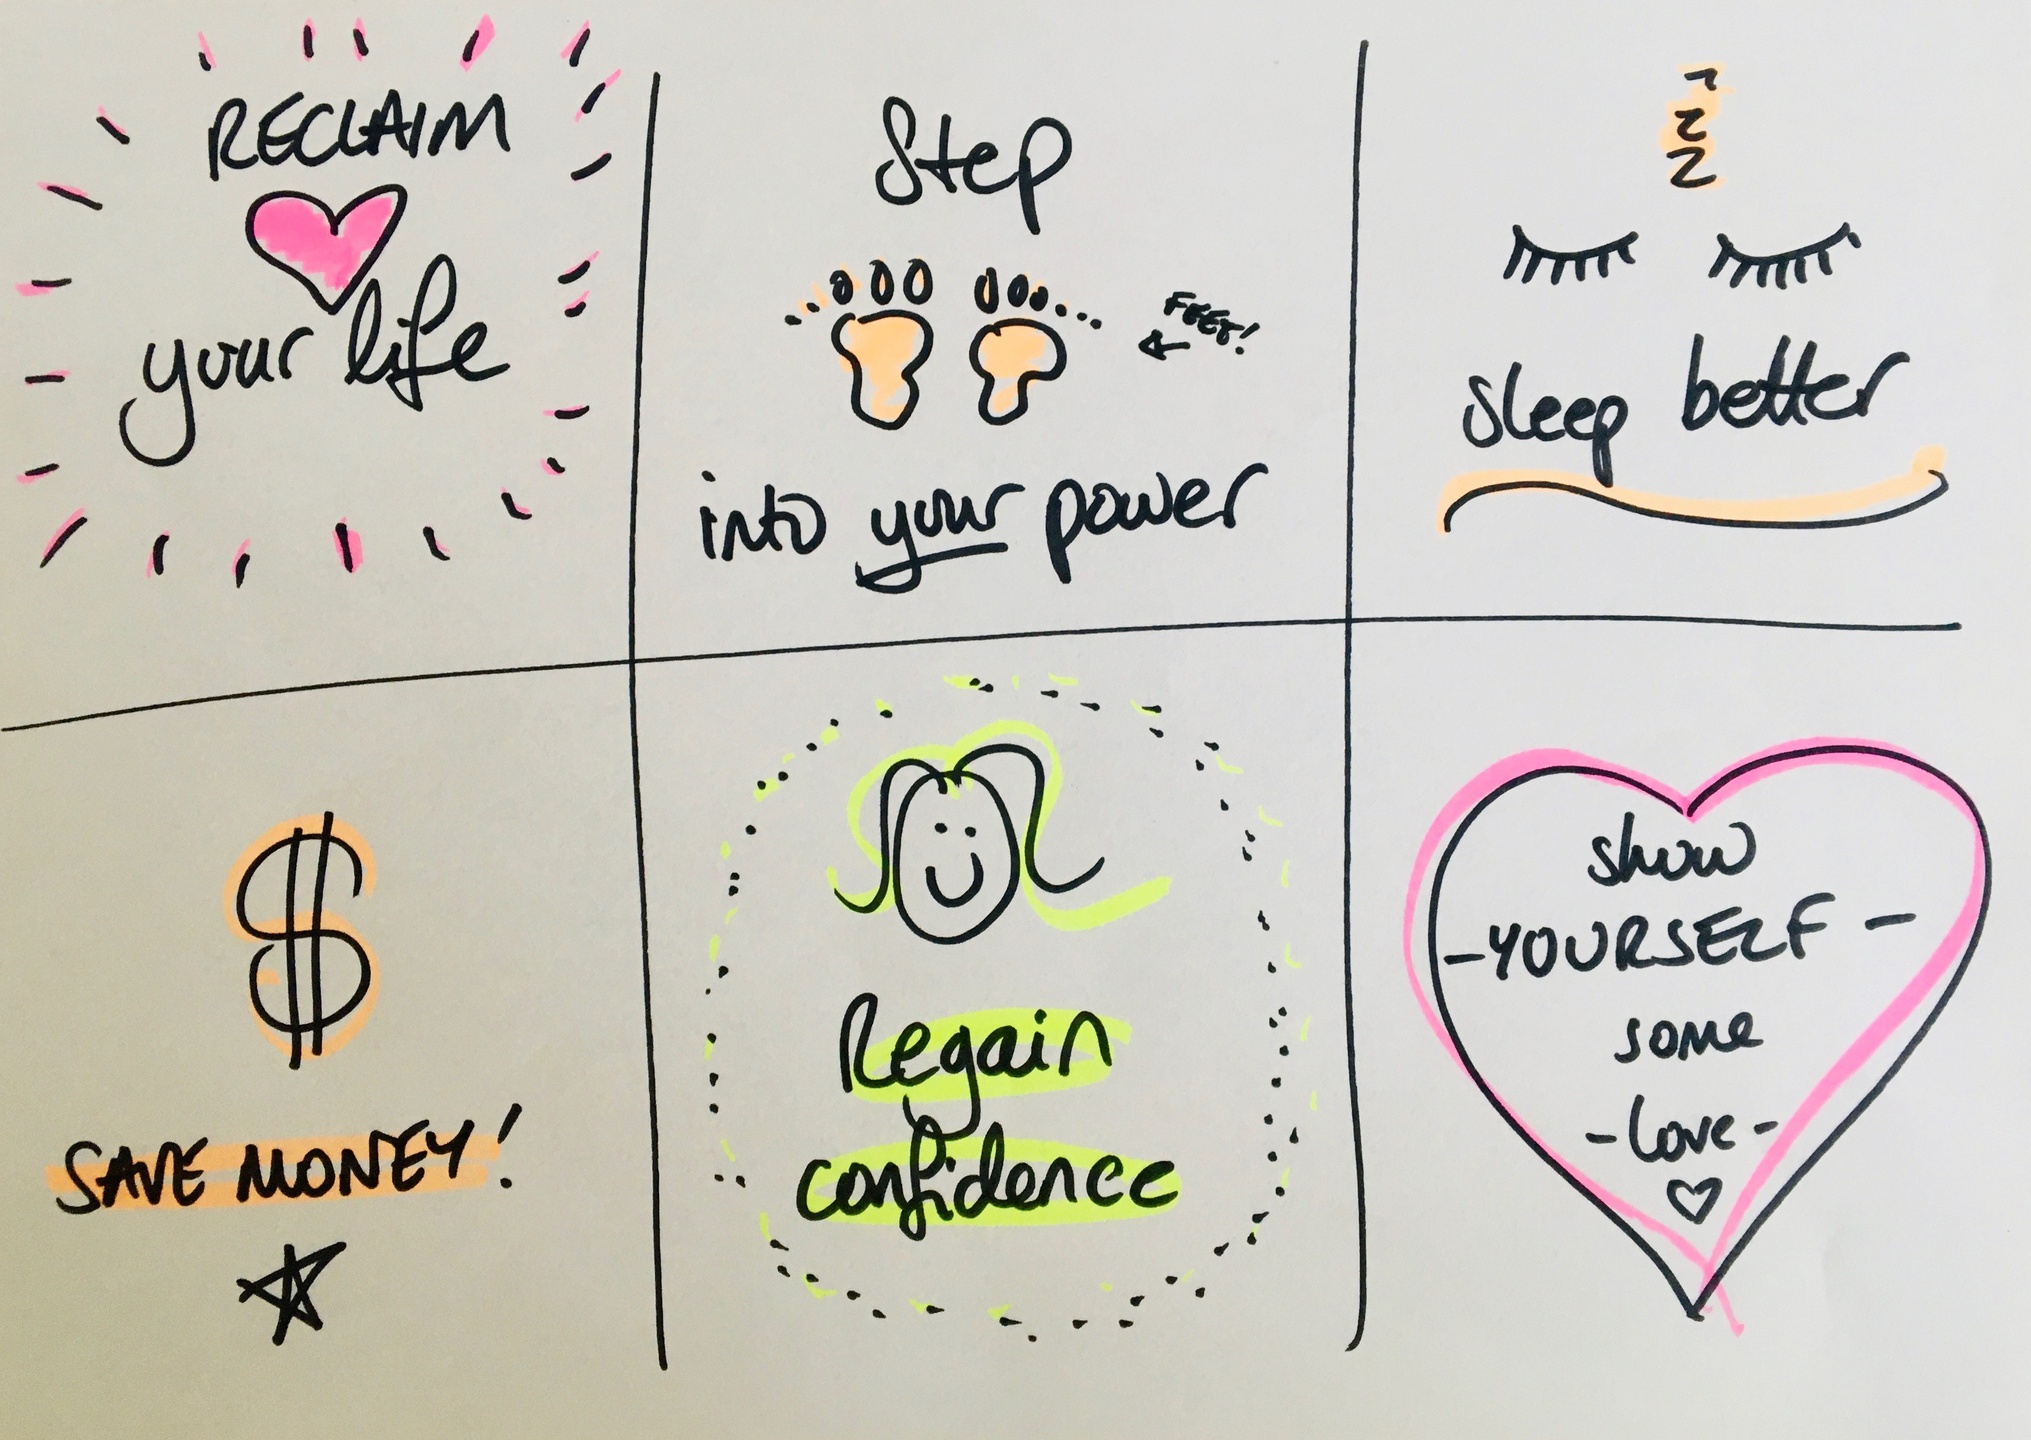 RECLAIM
your life
Step
FEET!
into your power
z
z
z
sleep better
$
SAVE MONEY!
Regain
confidence
show
-YOURSELF-
some
-love-